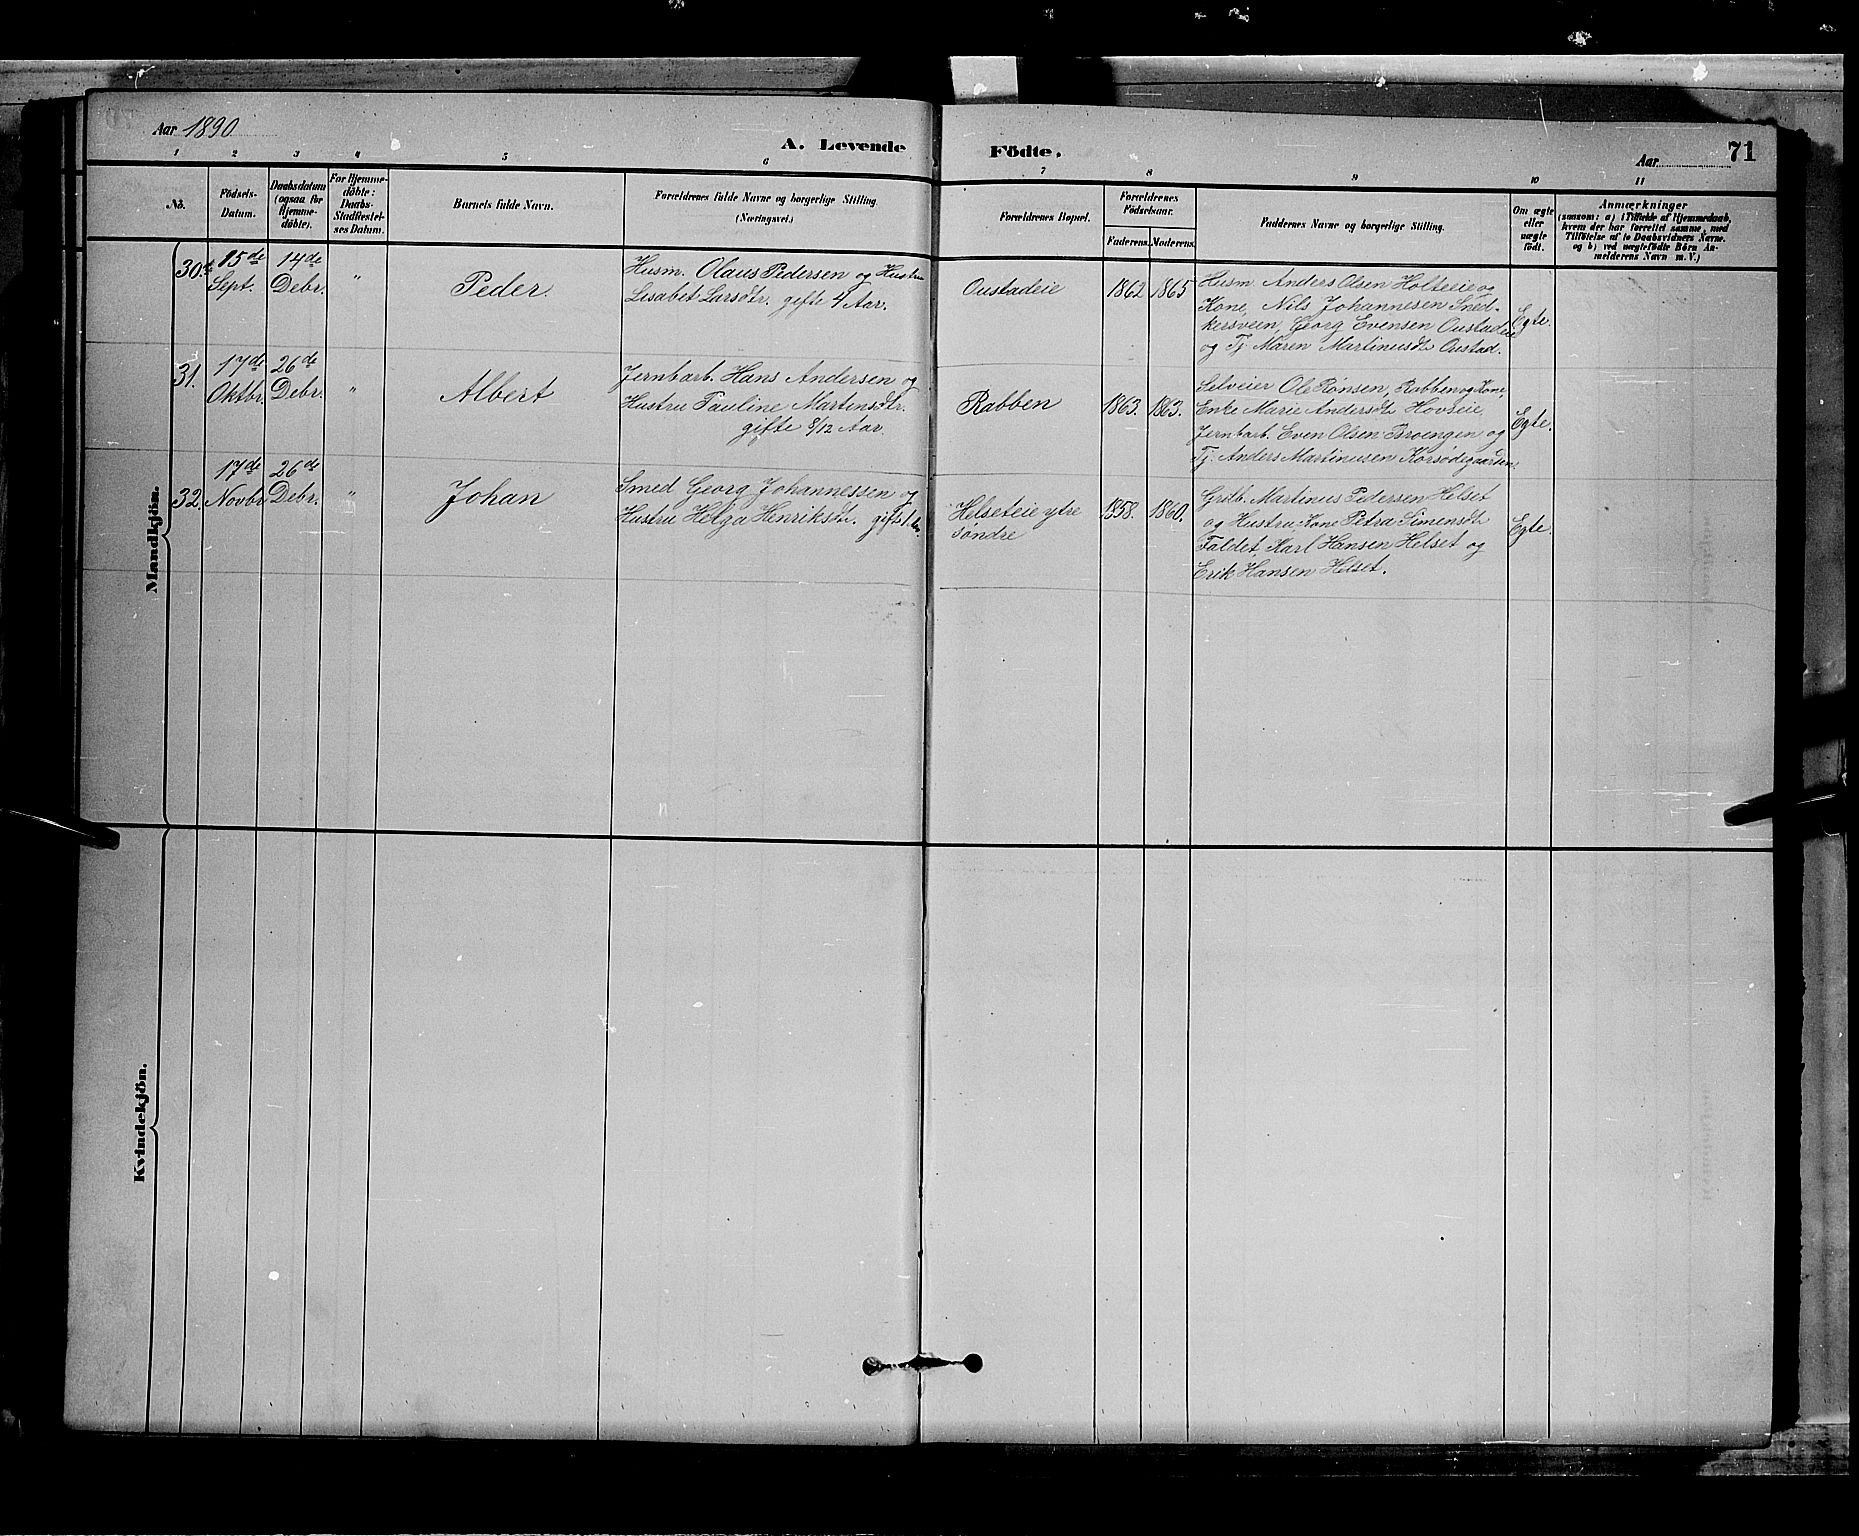 Aar 1890
A. Levende Födte.
Aar 71
1 2 3 4 5 6 7 8 9 10 11
No.
Födsels-
Datum.
Daabsdatum
(ogsaa for
Hjemme-
döbte).
For Hjemme-
döbte:
Daabs-
Stadfæstel-
ses Datum.
Barnets fulde Navn.
Forældrenes fulde Navne og borgerlige Stilling.
(Næringsvei.)
Forældrenes Bopæl.
Forældrenes
Födselsaar.
Faderens. Moderens.
Faddernes Navne og borgerlige Stilling.
Om ægte
eller
uægte
födt.
Anmærkninger
(saasom: a) i Tilfælde af Hjemmedaab,
hvem der har forrettet samme, med
Tilföielse af to Daabsvidners Navne.
og b) ved uægtefödte Börn An-
melderens Navn m. V.)
Mandkjön.
30. 15de Sept. 14de Debr. " Peder.
Husm. Olaus Pedersen og Hustru
Lisabet Larsdtr. gifte 4 Aar.
Oustadeie 1862 1865
Husm. Anders Olsen Holteeie og
Kone, Nils Johannesen Sned-
kersveen, Georg Evensen Oustadeie
og Tj. Maren Martinusdt. Oustad.
Egte.
31. 17de Oktbr. 26de Debr. " Albert
Jernbarb. Hans Andersen og
Hustru Pauline Martinsdtr.
gifte 8/12 Aar.
Rabben 1863. 1863.
Selveier Ole Rønsen, Rabben og Kone,
Enke Marie Andersdt. Hovseie,
Jernbarb. Even Olsen Broengen og
Tj. Anders Martinusen Korsødegaarden.
Egte.
32. 17de Novbr. 26de Debr. " Johan
Smed Georg Johannessen og
Hustru Helga Henriksdt. gift 1
Helseteie ytre
søndre
1858. 1860.
Grdb. Martinus Pedersen Helset
og Hustru Kone Petra Simensdt.
Faldet, Karl Hansen Helset og
Erik Hansen Helset.
Egte.
Kvindekjön.